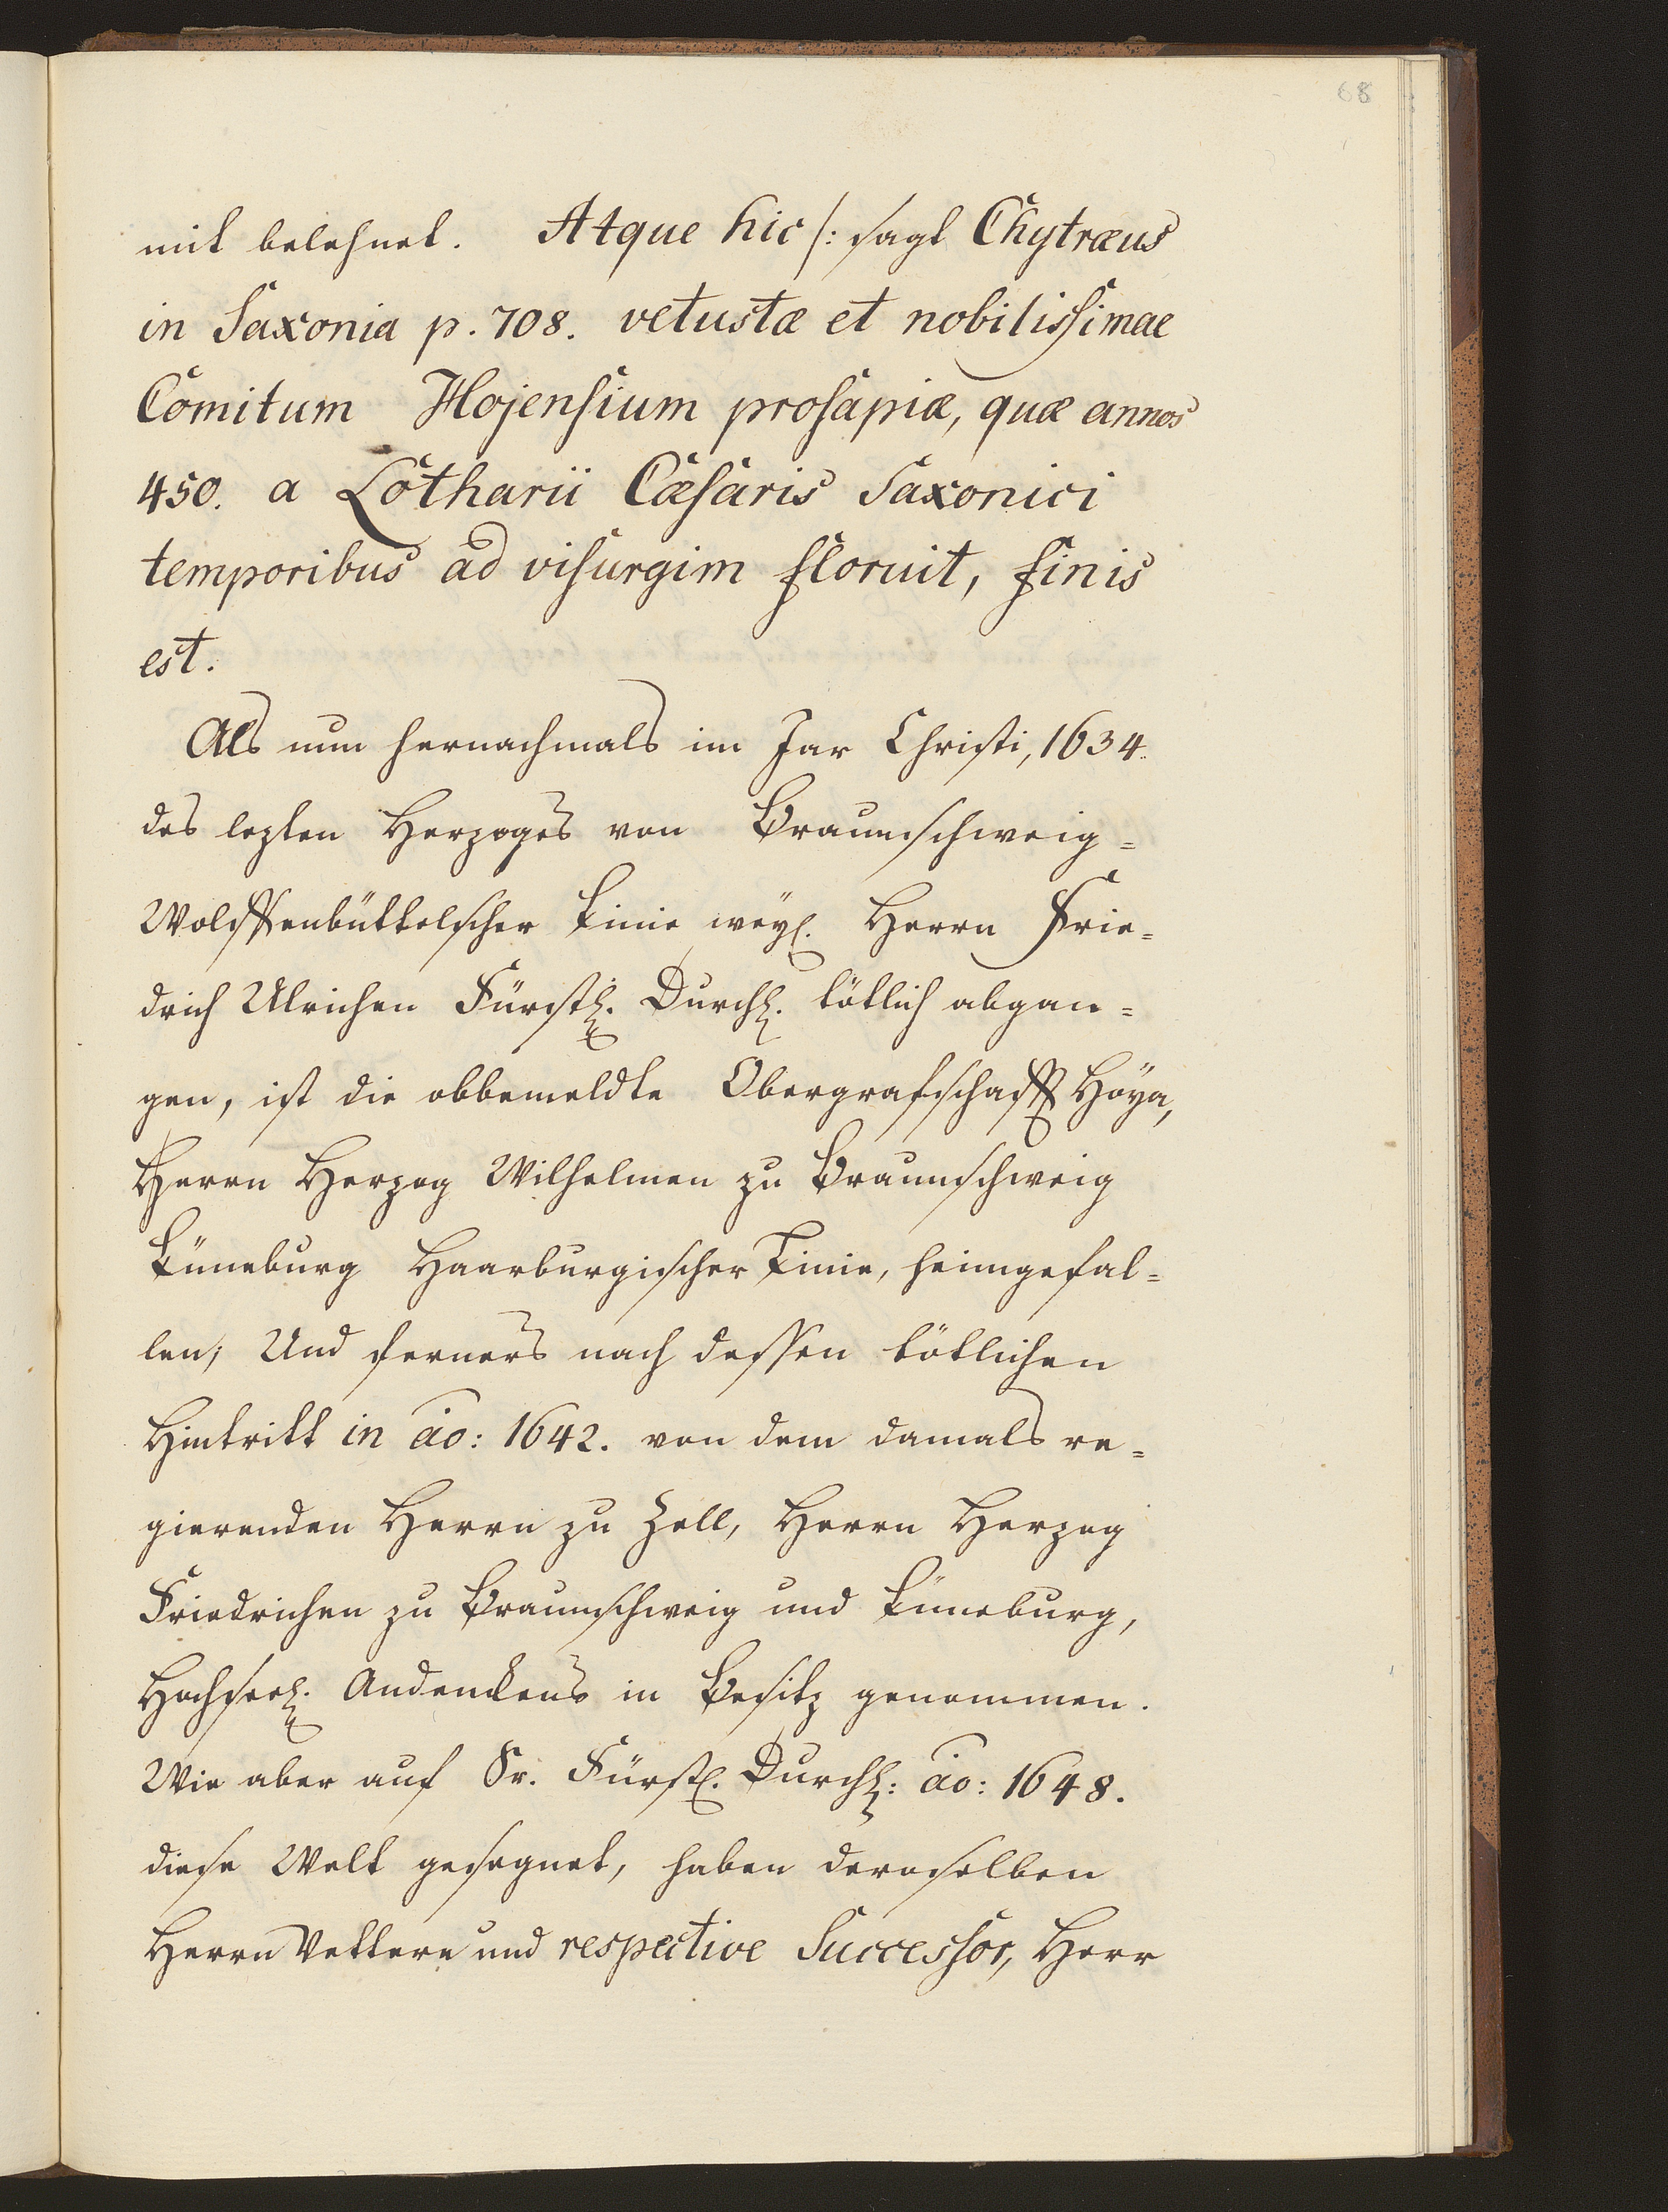 68
mit belehnet. Atque hic /: sagt Chytræus
in Saxonia p. 708. vetustæ et nobilissimae
Comitum Hojensium prosapiæ, quæ annos
450. a Lotharii Cæsaris Saxonici
temporibus ad visurgim floruit, finis
est.
Als nun hernachmals im Jar Christi, 1634.
des lezten Herzoges von Braunschweig=
Wolffenbüttelscher Linie weyl. Herrn Frie=
drich Ulrichen Fürstl. Durchl. tötlich abgan=
gen, ist die obbemeldte Obergrafschafft Höya,
Herrn Herzog Wilhelmen zu Braunschweig
Lüneburg Haarburgischer Linie, heimgefal=
len; Und ferners nach dessen tötlichen
Hintritt in ao: 1642. von dem damals re=
gierenden Herrn zu Zell, Herrn Herzog
Friedrichen zu Braunschweig und Lüneburg,
Hochseel. Andenckens in Besitz genommen.
Wie aber auf Sr. Fürstl. Durchl: ao: 1648.
diese Welt gesegnet, haben deroselben
Herrn Vettern und respective Successor, Herr